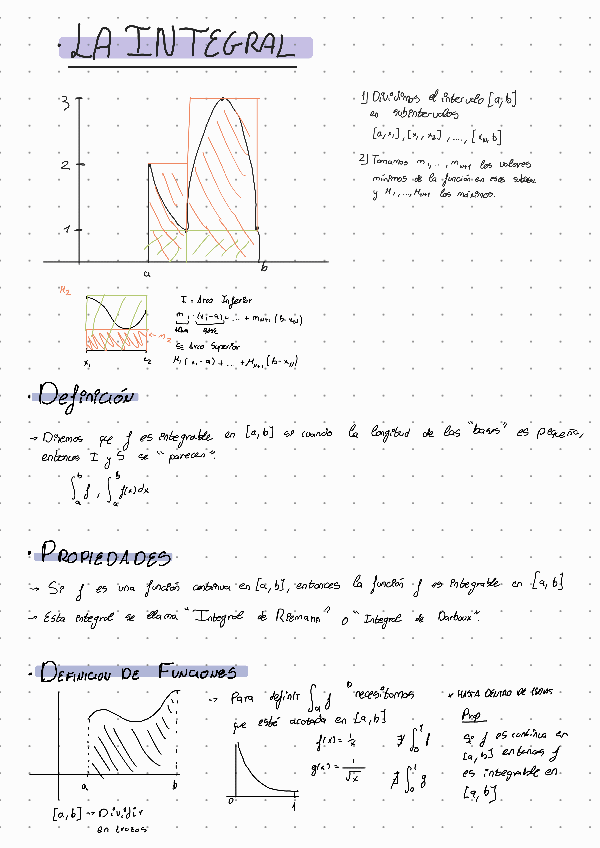 LA INTEGRAL
3
2
1
a
b
1) Dividimos el intervalo [a,b]
en subintervalos
[a,x₁],[x₁,x₂],....,[xₙ,b]
2) Tomamos m₁,...,mₙ₊₁ los valores
mínimos de la función en esos
y M₁,...,Mₙ₊₁ los máximos.
M₂
← m₂
x₁
x₂
I = Área Inferior
m₁·(x₁-a)+...+mₙ₊₁(b-xₙ)
base
S= Área Superior
M₁(x₁-a)+...+Mₙ₊₁(b-xₙ)
· Definición
→ Diremos que f es integrable en [a,b] si cuando la longitud de las "bases" es pequeña,
entonces I y S se "parecen".
∫ₐᵇ f , ∫ₐᵇ f(x)dx
· PROPIEDADES
→ Si f es una función continua en [a,b], entonces la función f es integrable en [a,b]
→ Esta integral se llama "Integral de Riemann" o "Integral de Darboux".
· DEFINICION DE FUNCIONES
a
b
[a,b] → Dividir
en trozos
→ Para definir ∫ₐᵇ f necesitamos
que esté acotada en [a,b]
f(x)= 1/x ∄ ∫₀¹ f
g(x)= 1/√x ∄ ∫₀¹ g
0
1
Prop
Si f es continua en
[a,b] entonces f
es integrable en
[a,b]